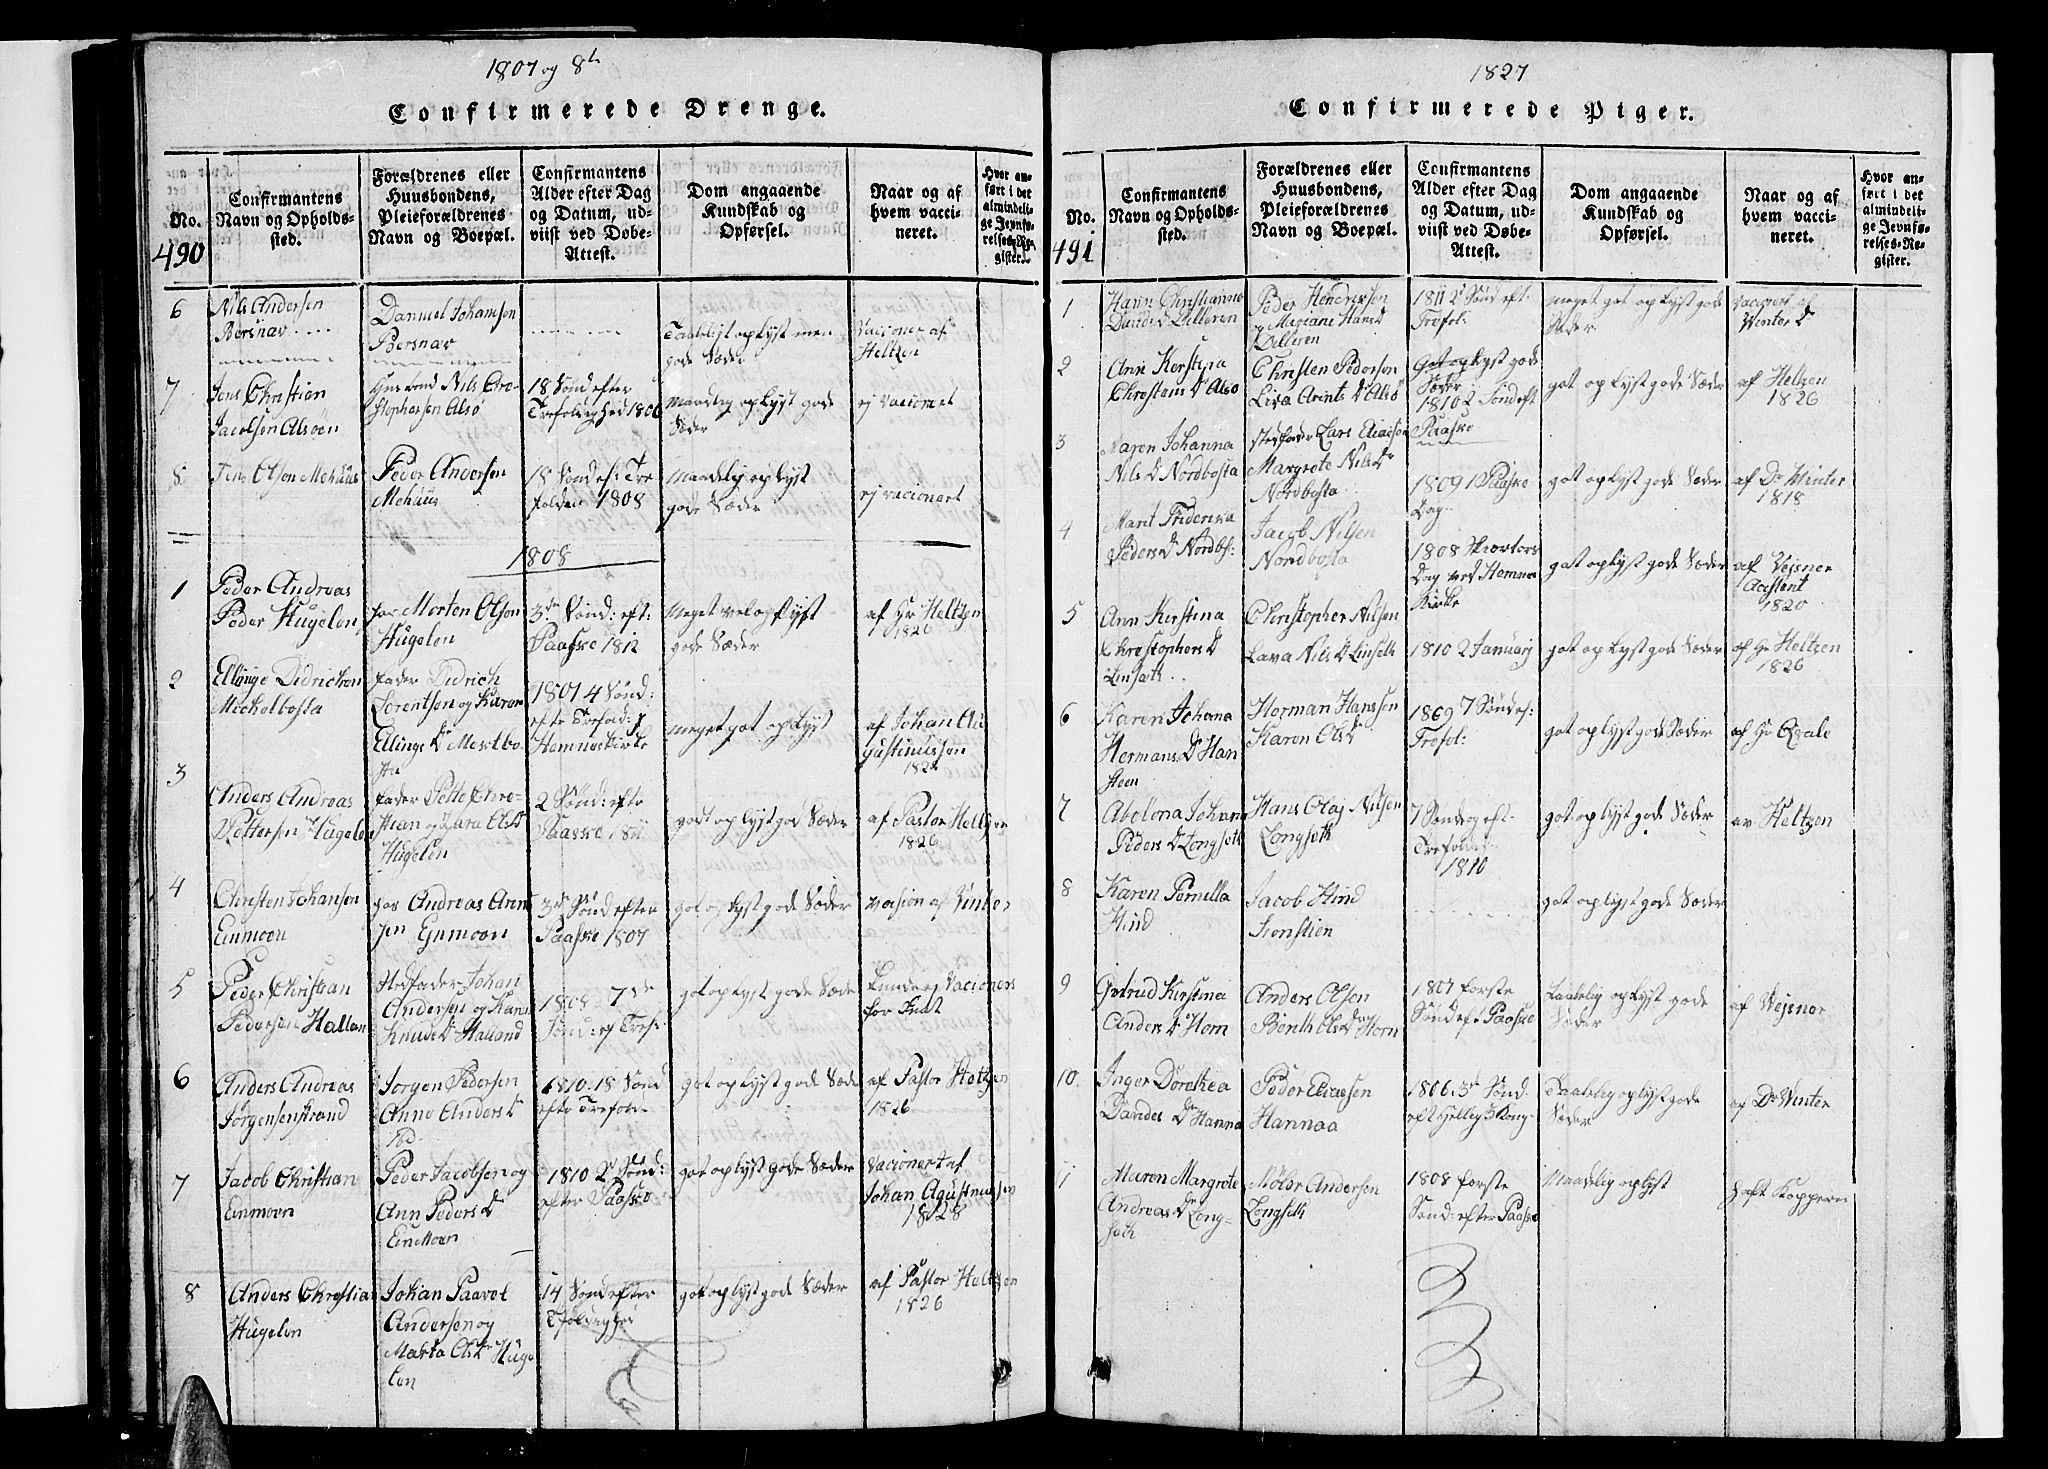 1807 og 8de
Confirmerede Drenge.
No.
490
Confirmantens
Navn og Opholds-
sted.
Forældrenes eller
Huusbondens,
Pleieforældrenes
Navn og Boepæl.
Confirmantens
Alder efter Dag
og Datum, ud-
viist ved Døbe-
Attest.
Dom angaaende
Kundskab og
Opførsel.
Naar og af
hvem vacci-
neret.
Hvor an-
ført i det
almindeli-
ge Jevnfø-
relses-Re-
gister.
6
Nils Andersen
Bersnav
Danniel Johansen
Bersnav
Taaleligt oplyst men
gode Sæder
Vacioner af
Heltzen
7
Jens Christian
Jacobsen Alsøen
Husbond Nils Cro-
stophersen Alsø
18 Sønd efter
Trefoldighed 1806
Maadlig oplyst gode
Sæder
ej vacionet
8
Jens Olsen Mehuus
Peder Andersen
Mehuus
18 Sønd ef: Tre
folden 1808
Maadelig oplyst
gode Sæder
ej vacionert
1808
1
Peder Andreas
Peder Hugelen
Morten Olsen
Hugelen
3de Sønd: eft:
Paaske 1812
meget vel oplyst
gode Sæder
af Hr Heltzen
1826
2
Ellinge Didrichsen
Mechelbosta
fader Didrich
Lorentsen og Karen
Ellings Dr Mestbo-
sta
1807 4 Sønd:
efte Trefold: i
Hemneskirke
meget got oplyst
af Johan Au
gustinussen
182
3
Anders Andreas
Pettersen Hugelen
fader Pette Chre-
stian og Sara Olsd
Hugelen
2 Sønd: efte
Paaske 1811
godt oplyst god Sæder
af Pastor Heltzen
1826
4
Christen Johansen
Einmoen
Andreas Arent
sen Einmoen
3de Sønd efter
Paaske 1807
got oplyst gode Sæder
vacion af Vinter
5
Peder Christian
Pedersen Hallan
Stedfader Johan
Andersen og Karn
Knuds D Halland
1808 7de
Sønd: ef Tref:
got oplyst gode Sæde
6
Anders Andreas
Jørgensen strand
Jørgen Pedersen
Anne Anders D
1810. 18 Sønd
efte Trefold:
got oplyst gode Sæde
af Pastor Heltzen
1826
7
Jacob Christian
Einmoen
Peder Jacobsen og
Ann Peders D
Einmoen
1810 2 Sønd:
efter Paaske
got oplyst gode Sæder
Vacionert af
Johan Agustinussen
1828
8
Anders Christian
Hugelen
Johan Paavel
Andersen og
Marta Olsd Huge
len
14 Sønd efter
got oplyst gode Sæder
af Pastor Heltzen
1826
1827
Confirmerede Piger.
No.
491
Confirmantens
Navn og Opholds-
sted.
Forældrenes eller
Huusbondens,
Pleieforældrenes
Navn og Boepæl.
Confirmantens
Alder efter Dag
og Datum, ud-
viist ved Døbe-
Attest.
Dom angaaende
Kundskab og
Opførsel.
Naar og af
hvem vacci-
neret.
Hvor an-
ført i det
almindeli-
ge Jevnfø-
relses-Re-
gister.
1
Peder Hendriksen
1811 2 Sønd eft:
Trefol:
meget got oplyst gode
Sæder
Vacioners af
Winter
2
Ann Kerstina
Christens D Alsø
Christen Pedersen
Lisa Arents D Alsø
Got oplyst gode
Sæder
1810 2 Søndeft
Paaske
got oplyst gode Sæder
af Heltzen
1826
3
Maren Johanna
Nils D Nordbosta
Stedfader Lars Eliasen
Margrete Nils Dr
Nordbosta
1809 1 Paaske
Dag
got oplyst gode Sæder
af Dr Winter
1818
4
Marit Frederika
Peders D Nordbs:
Jacob Nilsen
Nordbosta
1808 Skiærtors
Dag ved Hemnes
Kirke
got oplyst gode Sæder
af Veisner
1820
5
Ann Kirstina
Christophers D
Linseth
Christopher Nilsen
Lava Nils D Linseth
1810 2 Januarij
got oplyst gode Sæder
af Hr Heltzen
1826
6
Karen Johana
Hermans D Han
steen
Herman Hanssen
Karen Ols D
1809 7 Søndef:
Trefol:
got oplyst gode Sæder
af Hr Qvale
7
Abelona Johana
Peders D Longseth
Hans Olaj Nilsen
Longseth
7 Søndag eft-
Trefold:
1810
got oplyst gode Sæder
av Heltzen
8
Karen Pernilla
Hind
Jacob Hind
got oplyst gode Sæder
9
Gertrud Kirstina
Anders D Horn
Anders Olsen
Berith Ols D Horn
1807 forste
Søndeft Paaske
Taalelig oplyst gode
Sæder
af Vejsner
10
Inger Dorethea
Hanna
Peder Eliaesen
Hannaa
1806. 3de Sønd
eft Hellig 3 Kong-
Taalelig oplyst gode
Sæder
af Dr Winter
1
Maren Margrete
Andreas D Long-
seth
Andersen
Longseth
1808 forste
Sønd: efter Paaske
Maadelig oplyst
haft Koppern